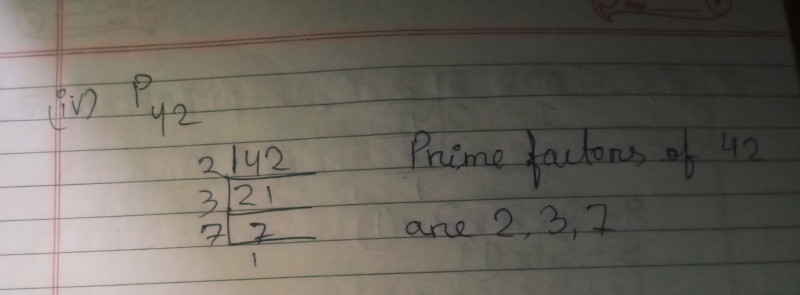 (iv) P42
2 | 42 Prime factors of 42
3 | 21
7 | 7 are 2, 3, 7
1